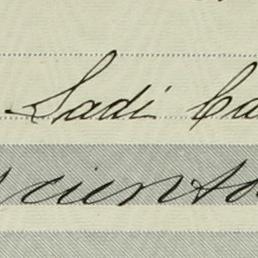 Sadi Ca
cientos